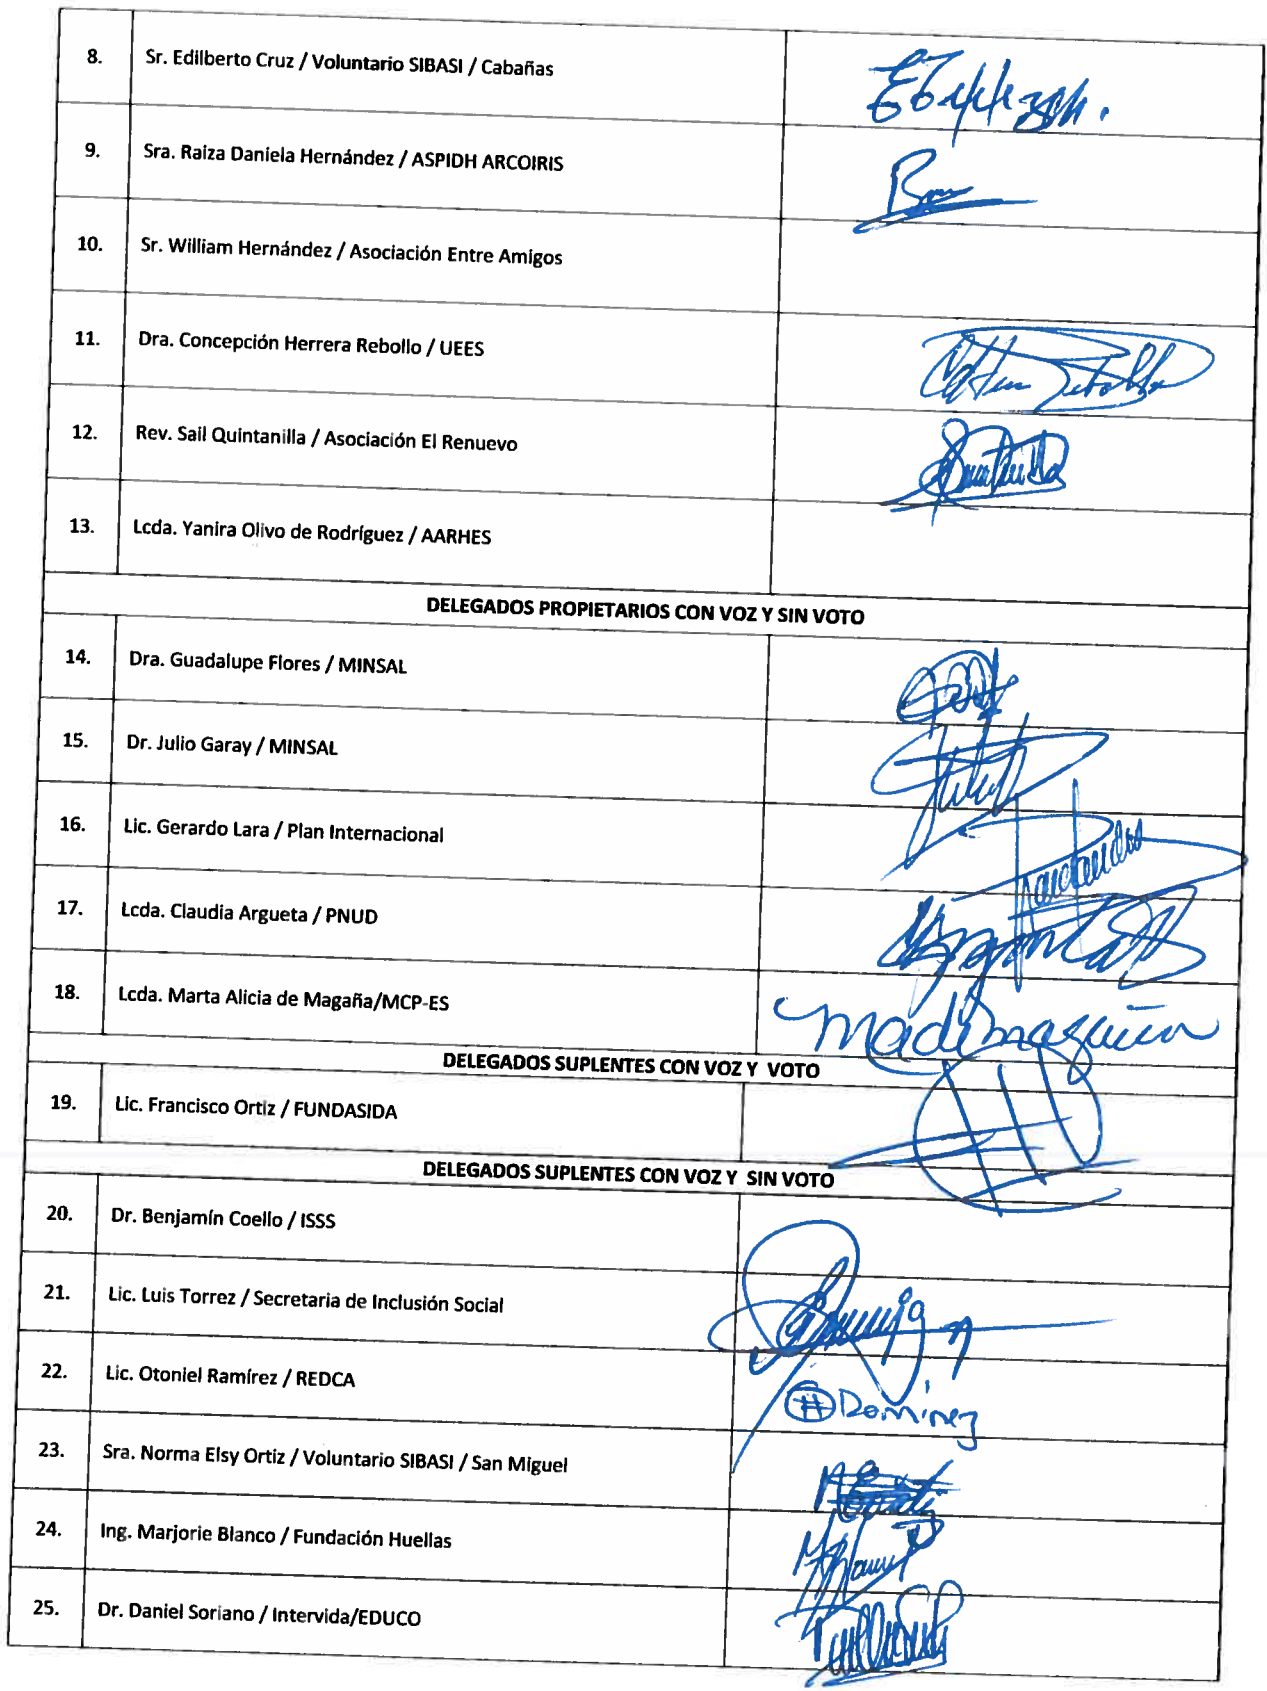 8. Sr. Edilberto Cruz / Voluntario SIBASI / Cabañas
9. Sra. Raiza Daniela Hernández / ASPIDH ARCOIRIS
10. Sr. William Hernández / Asociación Entre Amigos
11. Dra. Concepción Herrera Rebollo / UEES
12. Rev. Sail Quintanilla / Asociación El Renuevo
13. Lcda. Yanira Olivo de Rodríguez / AARHES
DELEGADOS PROPIETARIOS CON VOZ Y SIN VOTO
14. Dra. Guadalupe Flores / MINSAL
15. Dr. Julio Garay / MINSAL
16. Lic. Gerardo Lara / Plan Internacional
17. Lcda. Claudia Argueta / PNUD
18. Lcda. Marta Alicia de Magaña/MCP-ES
DELEGADOS SUPLENTES CON VOZ Y VOTO
19. Lic. Francisco Ortiz / FUNDASIDA
DELEGADOS SUPLENTES CON VOZ Y SIN VOTO
20. Dr. Benjamín Coello / ISSS
21. Lic. Luis Torrez / Secretaria de Inclusión Social
22. Lic. Otoniel Ramírez / REDCA
23. Sra. Norma Elsy Ortiz / Voluntario SIBASI / San Miguel
24. Ing. Marjorie Blanco / Fundación Huellas
25. Dr. Daniel Soriano / Intervida/EDUCO